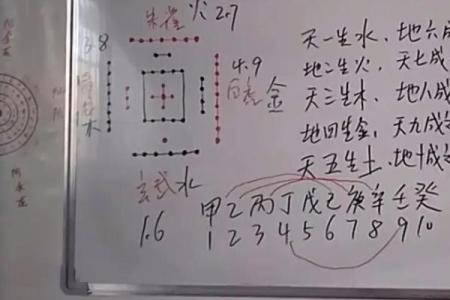 朱雀 火 2.7
3.8
木
4.9
白虎 金
玄武 水
1.6
天一生水，地六成
地二生火，天七成
天三生木，地八成
地四生金，天九成
天五生土，地十成
甲乙丙丁戊己庚辛壬癸
1 2 3 4 5 6 7 8 9 10